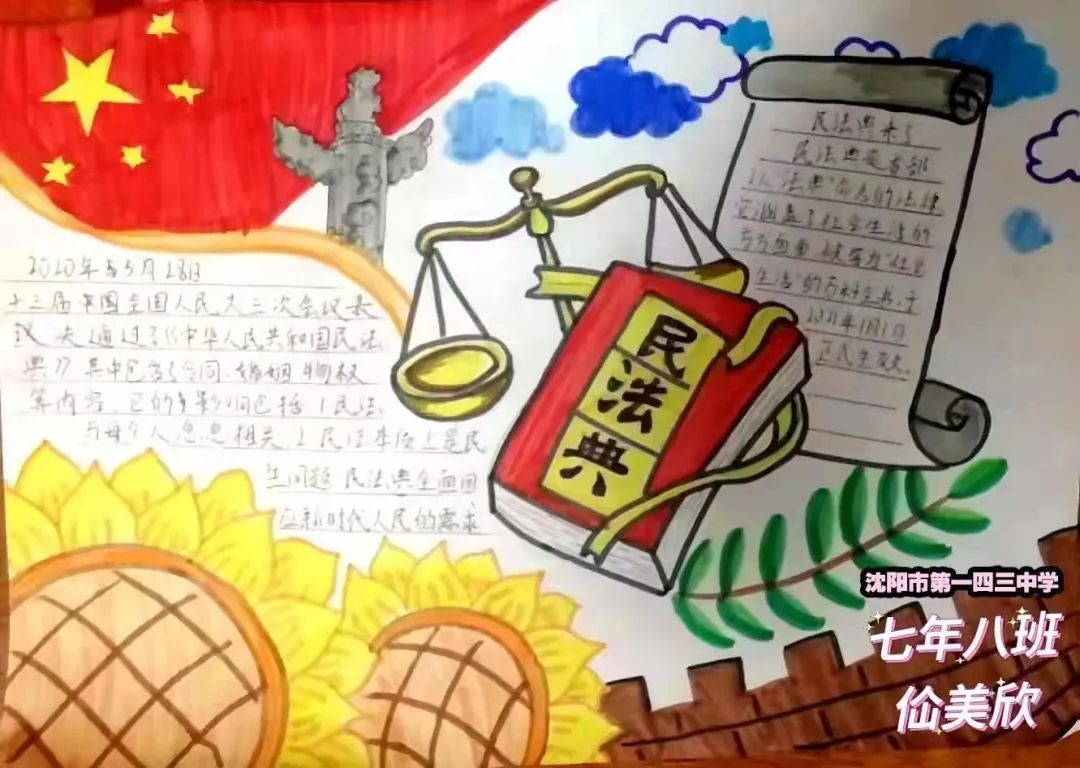 2020年5月28日
十三届中国全国人民大三次会议表
决通过了《《中华人民共和国民法
典》》其中包含了合同、婚姻、物权
等内容,它的影响包括1民法
与每个人息息相关、2民法本质上是民
生问题 民法典全面回
应新时代人民的需求
民法典
民法典来了
民法典是首部
以"法典"命名的法律
它涵盖了社会生活的
方方面面,被誉为"社会
生活"的百科全书,于
2021年1月1日
正式生效。
沈阳市第一四三中学
七年八班
仙美欣